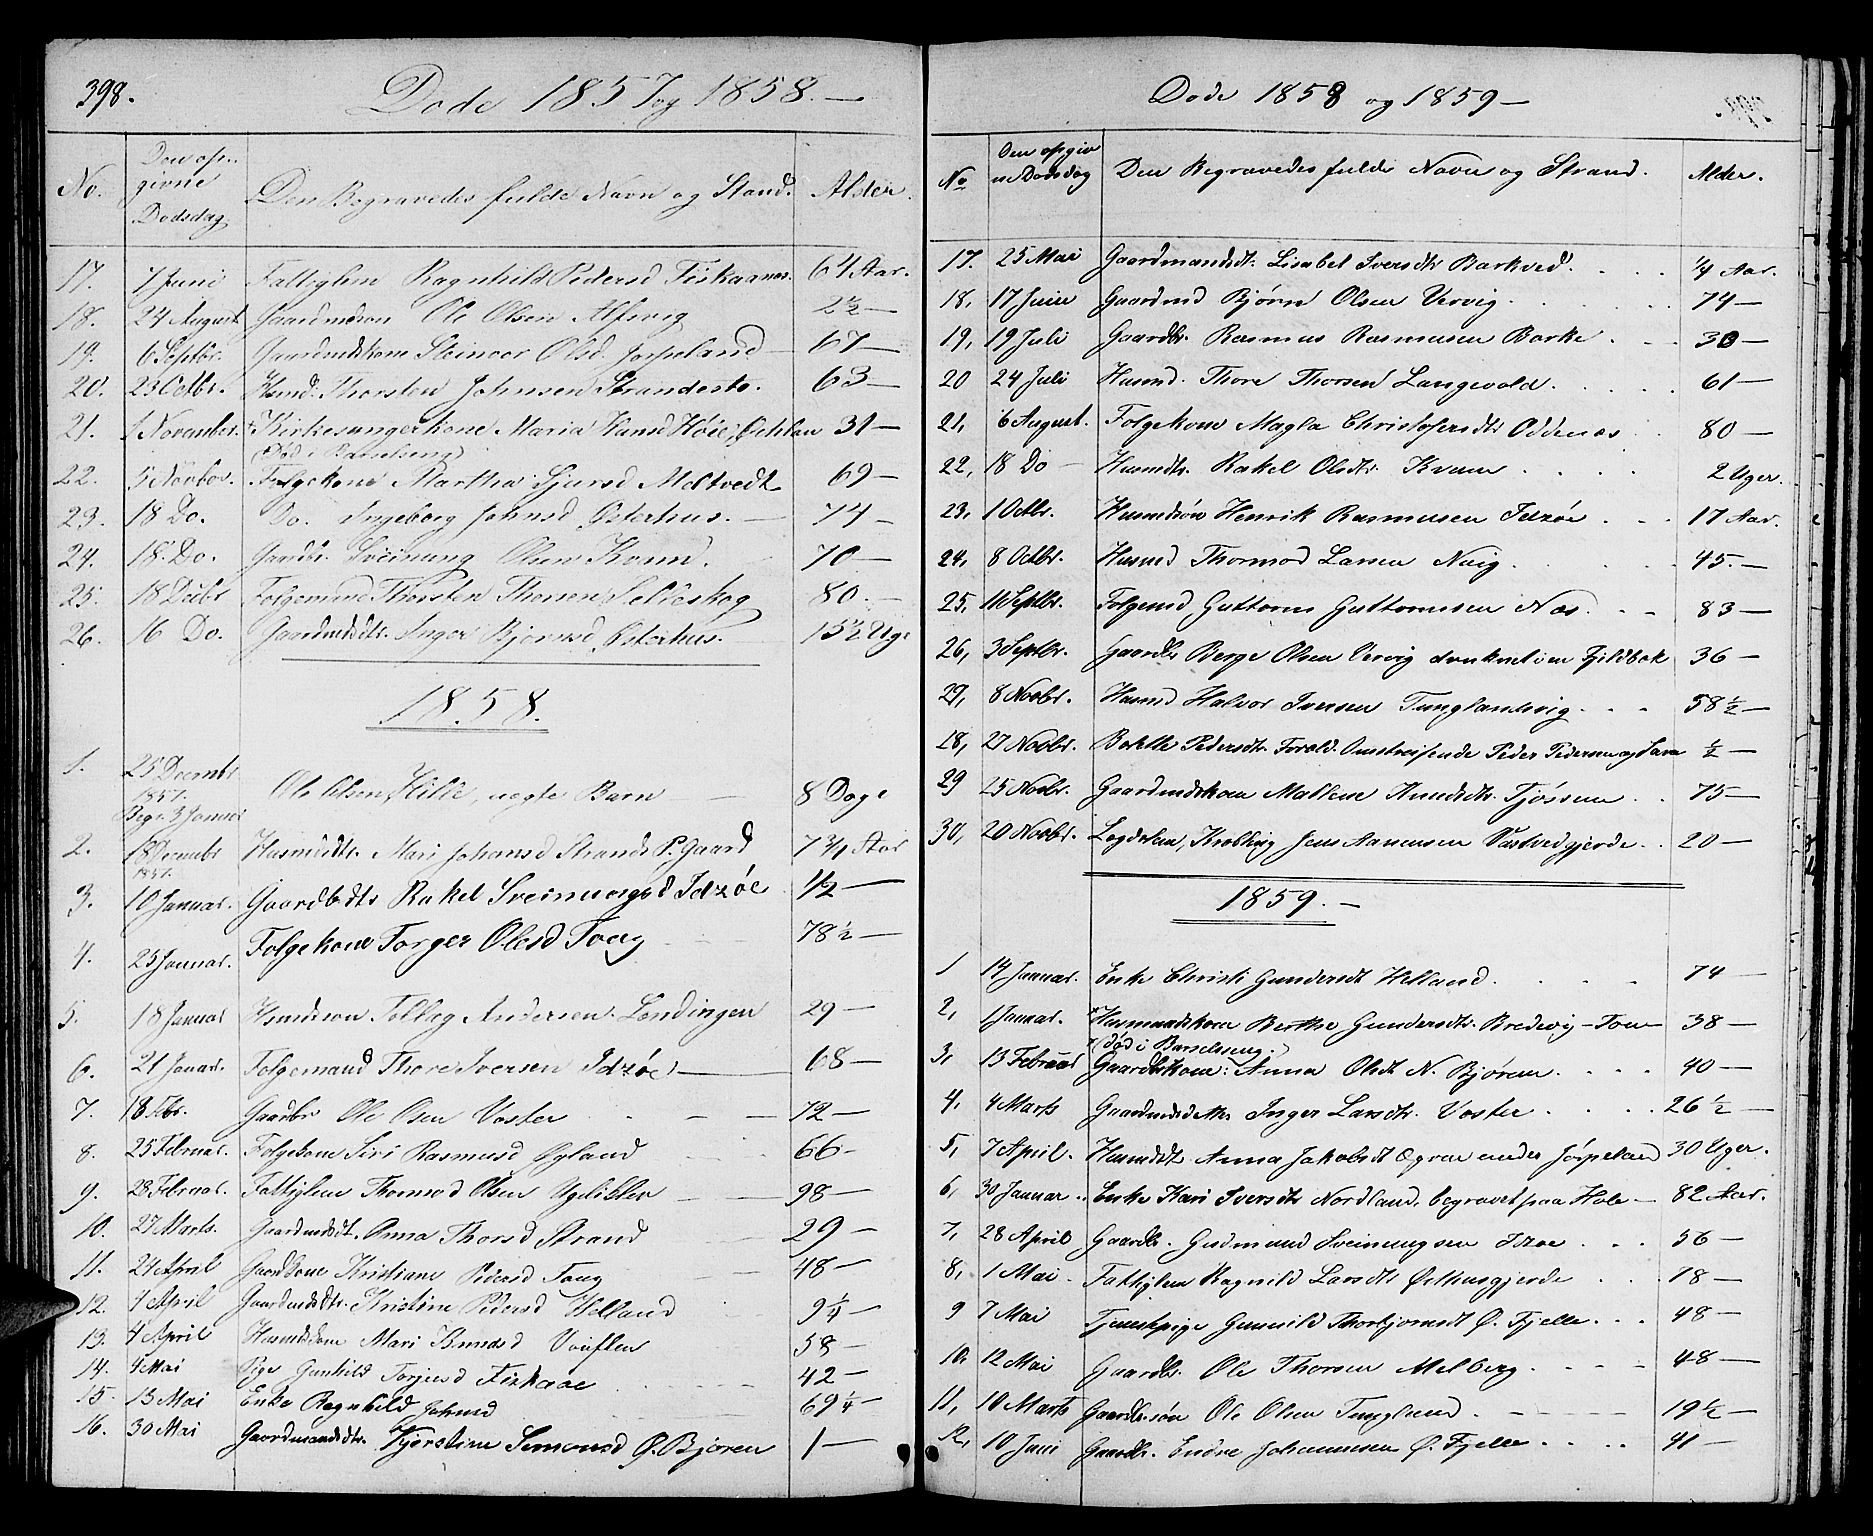 398.
Døde 1857 og 1858.—
No.
Den op-
givne
Dødsdag
Den Begravedes fulde Navn og Stand.
Alder.
17. 7 Juni Fattiglem Ragnhild Pedersd Fiskaanes. 64 Aar.
18. 24 August Gaardmdsøn Ole Olsen Alsvig 2½ —
19. 6 Septbr. Gaardmdskone Steinver Olsd. Jørpeland 67 —
20. 23 Octbr. Hsmd. Thorsten Johnsen Strandestø. 63 —
21. 1 November. Kirkesangerkone Maria Hansd Høie, 31 —
(Død i Barselseng)
22. 5 Novbr. Folgekone Martha Sjursd Meltvedt 69 —
23. 18 Do. Do. Ingeborg Johnsd Østerhus. — 74 —
24. 18. Do. Gaardbr. Sveinung Olsen Kvam. 70 —
25. 18 Decbr Folgemand Thorsten Thorsen Selieskog 80. —
26. 16 Do. Gaardmdsdtr. Inger Bjørnsd Østerhus. 15½ Uge
1858.
1. 25 Decembr
1857.
Begr. 3 Januar
Ole Olsen Hille, uægte Barn — 8 Dage
2. 18 Decembr
1857.
Husmdsdtr. Mari Johansd Strands P. Gaard 7¾ Aar
3. 10 Januar. Gaardbrdtr Rakel Sveinungsd Idzøe 1½ —
4. 25 Januar. Folgekone Torger Olesd Toug 78½ —
5. 18 Januar Hsmdssøn Tolleg Andersen Løndingen 29 —
6. 21 Januar. Folgemand Thore Iversen Idzøe — 68 —
7. 18 Fbr. Gaardbr Ole Olsen Voster — — 72 —
8. 25 Februar. Folgekone Siri Rasmusd Øyland 66 -
9. 28 Februar. Fattiglem Thormod Olsen — — 98 —
10. 27 Marts. Gaardmdsdt. Anna Thorsd Strand 29 —
11. 24 April Gaardkone Kristiane Pedersd Toug 48 —
12. 4 April Gaardmdsdtr. Kristine Pedersd Helland 9¼ —
13. 4 April Husmdskone Mari Knudsd 58 —
14. 4 Mai Pige Gunhild Torjersd Fiskaae 42 —
15. 13 Mai Enke Ragnhild Johnsd 69¼ —
16. 30 Mai Gaardmandsdtr. Kjerstine Simonsd Ø. Bjøren 1 —
Døde 1858 og 1859 —
No
Den opgiv
ne Dødsdag
Den Begravedes fulde Navn og Strand.
Alder.
17. 25 Mai Gaardmandsdt. Lisabet Iversdtr Barkved. ¼ Aar.
18, 17 Juni Gaardmd Bjørn Olsen Vervig. 74 —
19, 19 Juli Gaardbr. Rasmus Rasmussen Barke 30 —
20 24 Juli Husmd. Thore Thorsen Langevold. 61 —
21, 6 August. Folgekone Magla Christofersdtr Oddenæs 80 —
22, 18 Do — Husmdtr. Rakel Olsdtr. Kvam 2 Uger.
23, 1 Octbr. Husmdsøn Henrik Rasmussen Idzøe 17 Aar.
24, 8 Octbr. Husmd Thormod Larsen Naig 45. —
25, 11 Septbr. Folgemd Guttorm Guttormsen Næs. 83 —
26, 3 Septbr. Gaardbr Berge Olsen Vervig druknet i en Fjeldbæk 36 —
29, 8 Novbr. Husmd Halvor Iversen Tunglandsvig. 58½ —
18, 27 Novbr. Bolette Pedersdtr. Foræld. Omstreifende Peder Pedersen og Sara ½ —
29 25 Novbr. Gaardmdskone Mallene Knudsdtr. Tjøssem 75 —
30, 20 Novbr. Legdslem, Krøbling Jens Aanensen Vastvedgjerde 20 —
1859. —
1 14 Januar. Enke Christi Gundersdt Helland 74 —
2, 1 Januar. Husmandskone Berthe Gundersdtr. Bredevig - Tou 38 —
(død i Barselseng.)
3, 13 Februar Gaardbrkone: Anna Olsdt N. Bjøren 40 —
4, 4 Marts Gaardmdsdtr. Inger Larsdtr. Voster 26½ —
5, 7 April. Husmdsdt. Anna Jakobsdt Øgreie under Jørpeland 30 Uger.
6, 30 Januar Enke Kari Iversdtr Nordland, begravet paa Hole — 82 Aar.
7, 28 April Gaardbr. Gudmund Sveinungsen Idzøe 56 —
8, 1 Mai. Fattiglem Ragnild Larsdtr Østhusgjerde 78 —
9 7 Mai Tjenestpige Gunnild Thorbjørnsdt Ø. Fjelle 48 —
10, 12 Mai Gaardbr. Ole Thorsen Melberg 48 —
11, 10 Marts Gaardbrsøn Ole Olsen Tungland 19½ —
12, 10 Juni Gaardbr. Endre Johannessen Ø. Fjelle 41 —